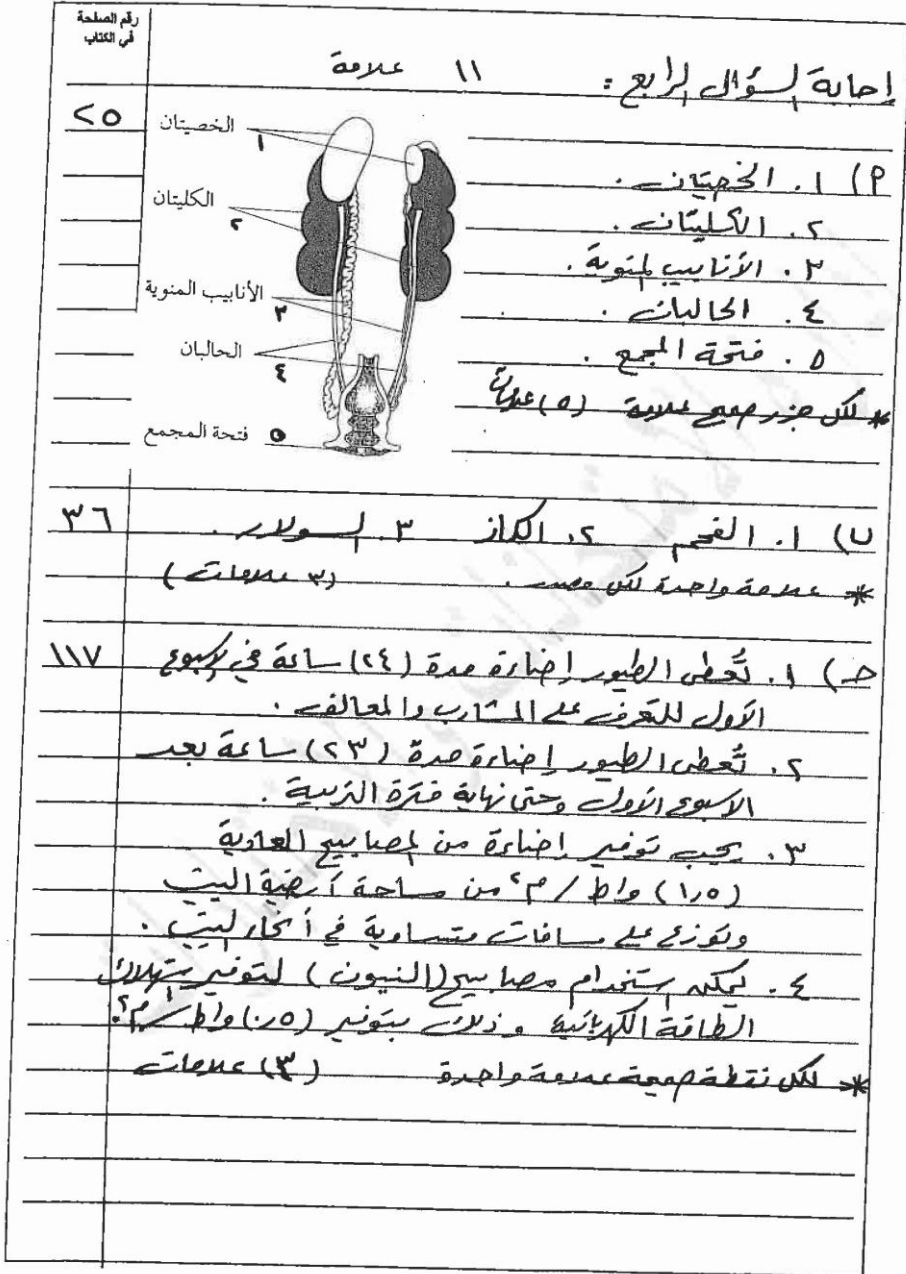 رقم الصفحة
في الكتاب
إجابة السؤال الرابع : ١١ علامة
٢٥
أ) ١. الخصيتان .
٢. الكليتان .
٣. الأنابيب المنوية .
٤. الحالبان .
٥. فتحة المجمع .
* لكل جزء صحيح علامة (٥) علامات
الخصيتان
١
الكليتان
٢
الأنابيب المنوية
٣
الحالبان
٤
٥ فتحة المجمع
ب) ١. الفحم ٢. الكاز ٣. السولار . ٣٦
* علامة واحدة لكل مصدر . (٣ علامات)
جـ) ١. تُعطى الطيور إضاءة مدة (٢٤) ساعة في الاسبوع ١١٧
الأول للتعرف على المشارب والمعالف .
٢. تُعطى الطيور إضاءة مدة (٢٣) ساعة بعد
الاسبوع الأول وحتى نهاية فترة التربية .
٣. يجب توفير إضاءة من المصابيح العادية
(١,٥) واط / م٢ من مساحة أرضية البيت
وتوزع على مسافات متساوية في أنحاء البيت .
٤. يمكن استخدام مصابيح (النيون) لتوفير استهلاك
الطاقة الكهربائية وذلك بتوفير (٠,٥) واط / م٢.
* لكل نقطة صحيحة علامة واحدة (٣) علامات